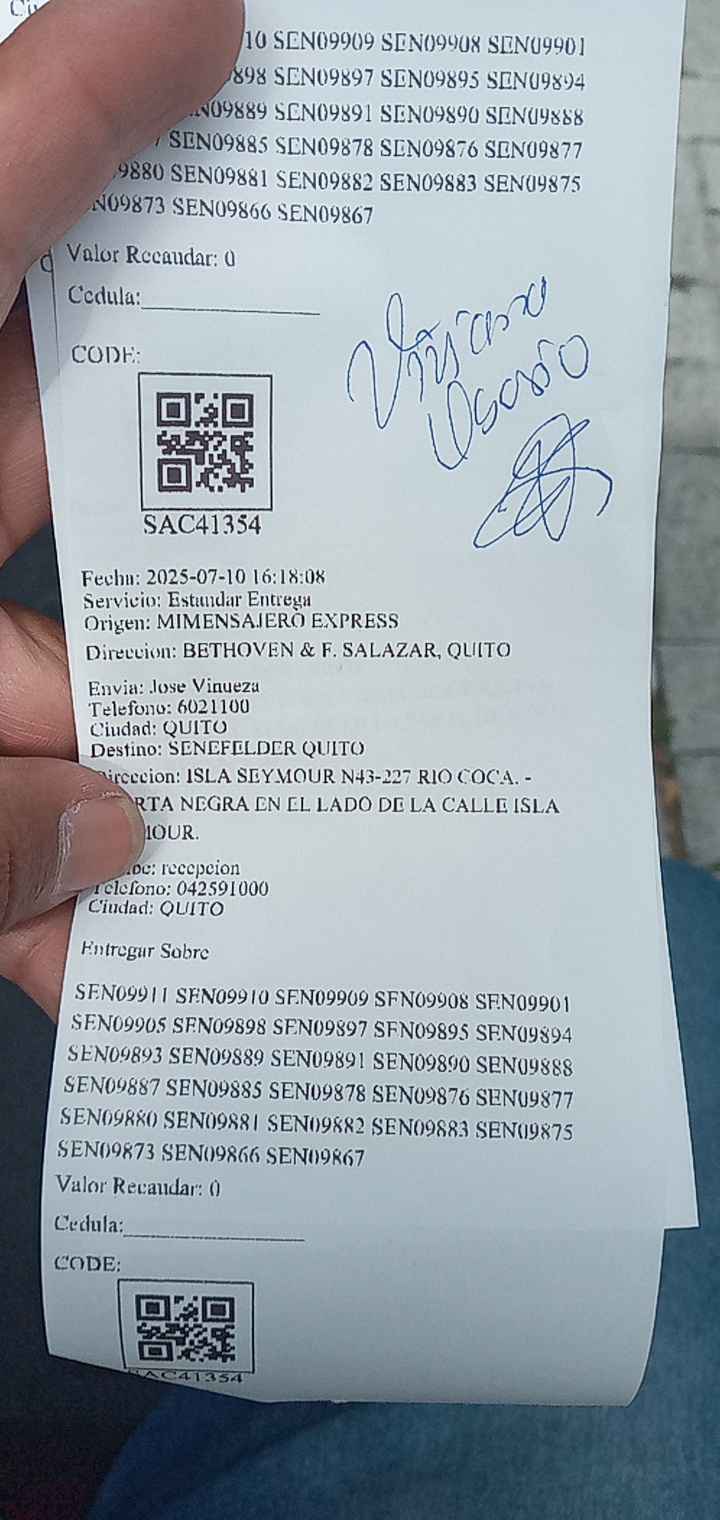 10 SEN09909 SEN09908 SEN09901
898 SEN09897 SEN09895 SEN09894
N09889 SEN09891 SEN09890 SEN09888
SEN09885 SEN09878 SEN09876 SEN09877
09880 SEN09881 SEN09882 SEN09883 SEN09875
N09873 SEN09866 SEN09867
Valor Recaudar: 0
Cedula:
CODE:
SAC41354
Fecha: 2025-07-10 16:18:08
Servicio: Estandar Entrega
Origen: MIMENSAJERO EXPRESS
Direccion: BETHOVEN & F. SALAZAR, QUITO
Envia: Jose Vinueza
Telefono: 6021100
Ciudad: QUITO
Destino: SENEFELDER QUITO
Direccion: ISLA SEYMOUR N43-227 RIO COCA. -
RTA NEGRA EN EL LADO DE LA CALLE ISLA
MOUR.
be: recepcion
Telefono: 042591000
Ciudad: QUITO
Entregar Sobre
SEN09911 SEN09910 SEN09909 SEN09908 SEN09901
SEN09905 SEN09898 SEN09897 SEN09895 SEN09894
SEN09893 SEN09889 SEN09891 SEN09890 SEN09888
SEN09887 SEN09885 SEN09878 SEN09876 SEN09877
SEN09880 SEN09881 SEN09882 SEN09883 SEN09875
SEN09873 SEN09866 SEN09867
Valor Recaudar: 0
Cedula:
CODE:
SAC41354